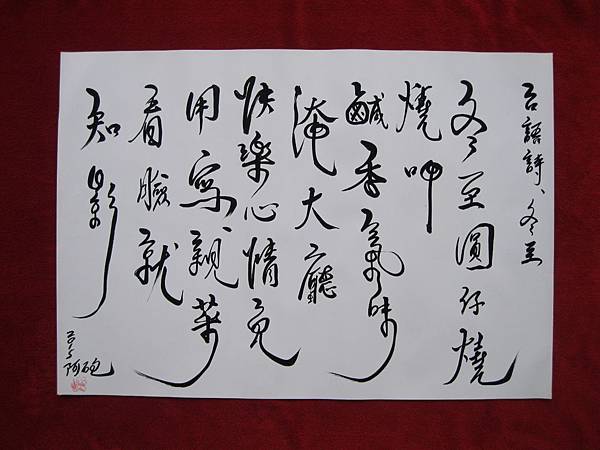 台語詩、冬至
冬至圓仔燒
燒呷
鹹香氣味
淹大廳
快樂心情免
用寫、親菜
看臉就
知影
阿砲